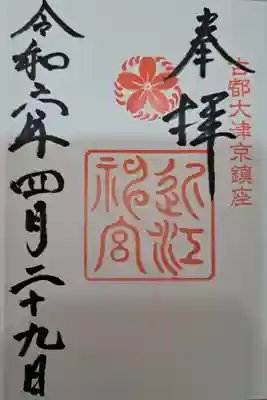 古都大津京鎮座
奉拝
近江神宮
令和六年四月二十九日